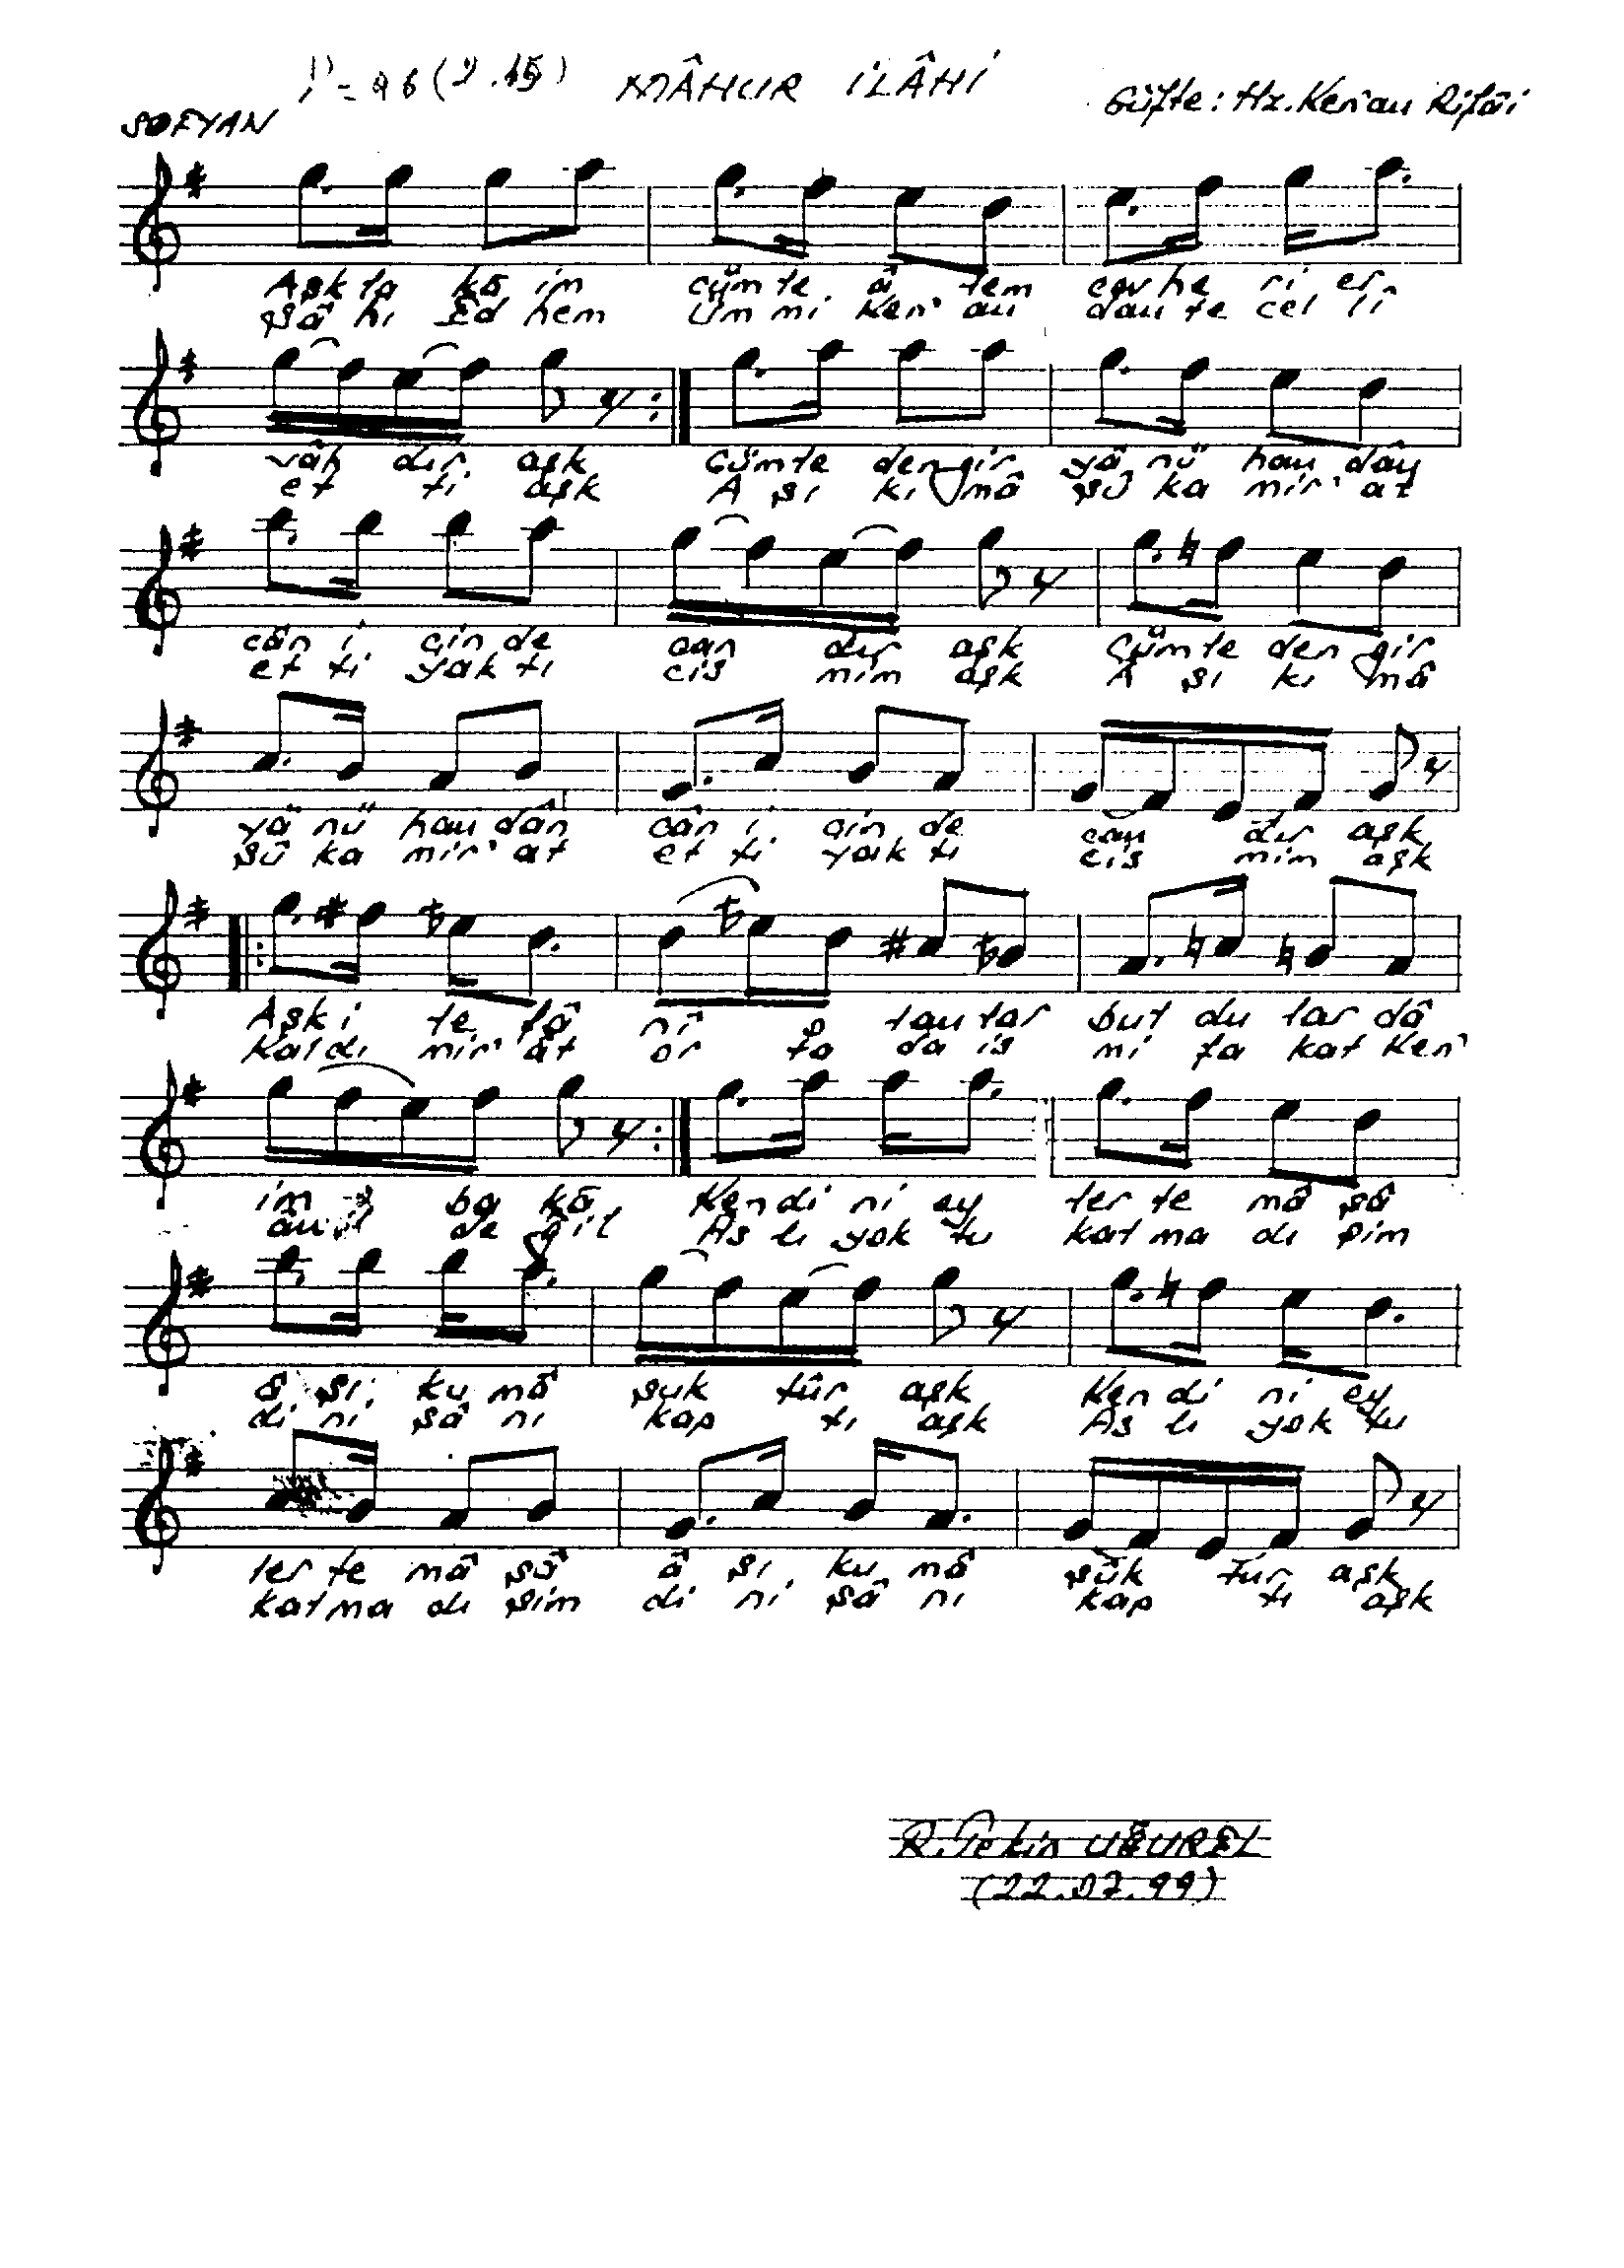 ♪ = 96 (2.45) MÂHUR İLÂHİ
SOFYAN
Güfte: Hz. Ken'an Rifâi
Aşk la kā im cüm le â lem cev he ri er
Şâ hi Ed hem Üm mi Ken' an dan te cel li
vâh dır aşk Cüm le den gir yâ nü han dân
et ti aşk Â şı kı mâ şû ka mir' at
cân i çin de can dır aşk Cüm le den gir
et ti yak tı cis mim aşk Â şı kı mâ
yâ nü han dân cân i çin de can dır aşk
şû ka mir' at et ti yak tı cis mim aşk
Aşk i le fâ nî o lan lar bul du lar dâ
Kal dı mir' ât or ta da is mi fa kat Ken'
im â ba kā Ken di ni ey ler te mâ şâ
ân il de ğil As lı yok tu kal ma dı şim
â şı ku mâ şuk tur aşk Ken di ni ey
di ni şâ nı kap tı aşk As lı yok tu
ler te mâ şâ â şı ku mâ şûk tur aşk
kal ma dı şim di ni şâ nı kap tı aşk
R. Tekin UĞUREL
(22.07.99)